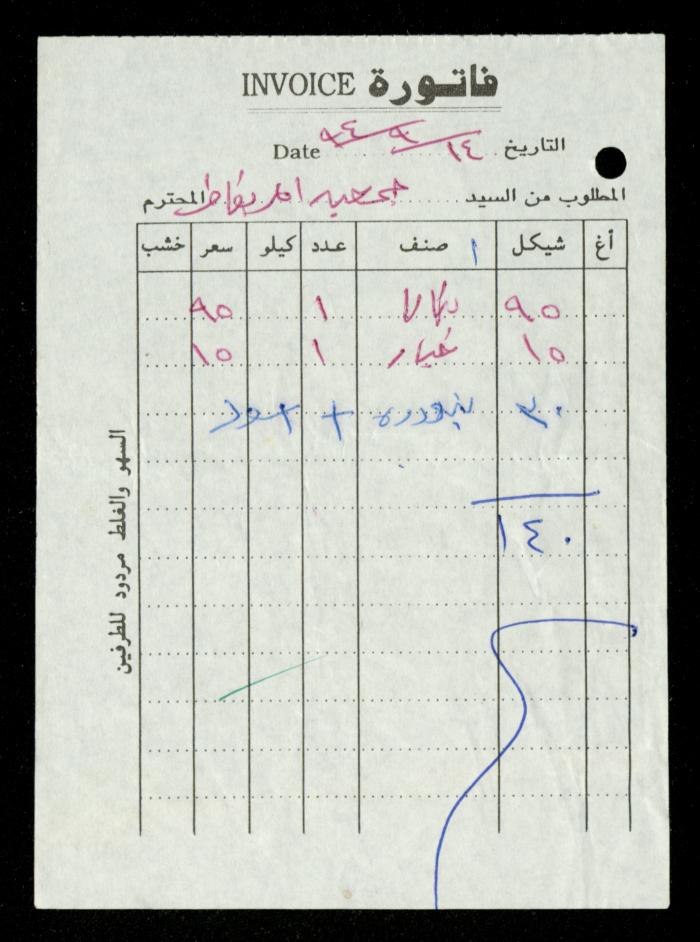 فاتورة INVOICE
التاريخ ١٤ / ٩ / ٩٤ Date
المطلوب من السيد جمعية المحترم
أغ شيكل ١ صنف عدد كيلو سعر خشب
٩٥ ١ ٩٥
١٥ خيار ١ ١٥
٣٠ بندورة +
١٤٠
السهو والغلط مردود للطرفين